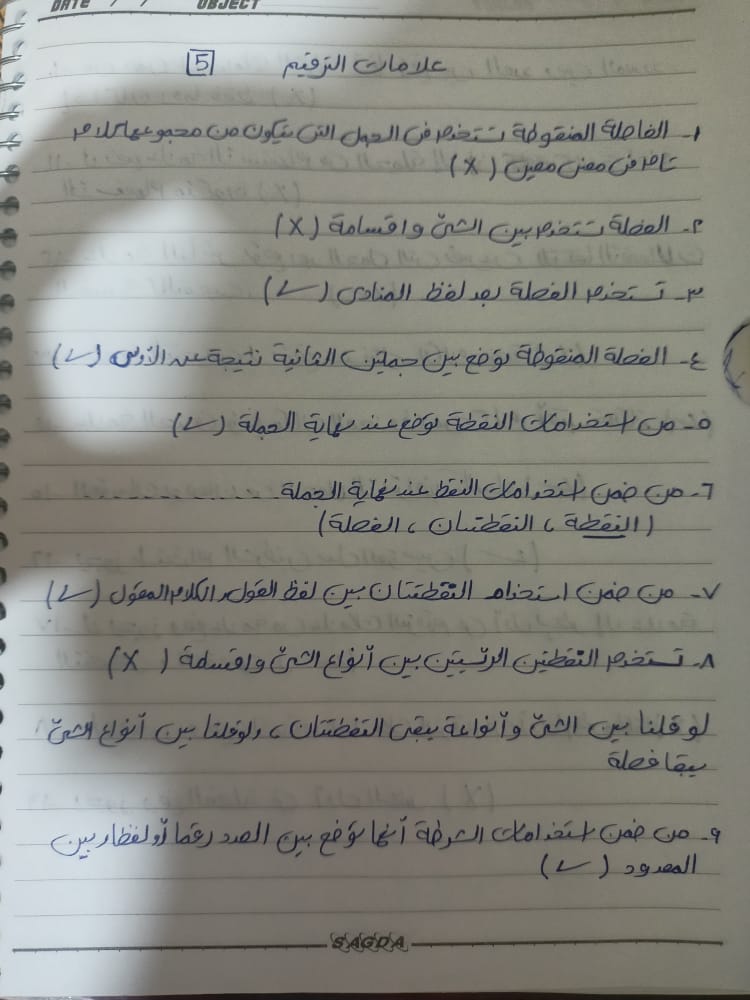 DATE / / OBJECT
علامات الترقيم 5
١- الفاصلة المنقوطة تستخدم فى الجمل التى يتكون من مجموعها كلام
تام فى معنى معين (X)
٢- الفصلة تستخدم بين الشئ واقسامة (X)
٣- تستخدم الفصلة بعد لفظ المنادى (✓)
٤- الفصلة المنقوطة توضع بين جملتين الثانية نتيجة عن الأولى (✓)
٥- من استخدامات النقطة توضع عند نهاية الجملة (✓)
٦- من ضمن استخدامات النقط عند نهاية الجملة ............
(النقطة ، النقطتان ، الفصلة)
٧- من ضمن استخدام النقطتتان بين لفظ القول والكلام المقول (✓)
٨- تستخدم النقطتين الرئسيتين بين أنواع الشئ واقسامة (X)
لو قلنا بين الشئ وأنواعة يبقى النقطتتان ، ولو قلنا بين أنواع الشئ
يبقا فصلة
٩- من ضمن استخدامات الشرطة أنها توضع بين العدد رقما أو لفظا وبين
المعدود (✓)
SAGDA